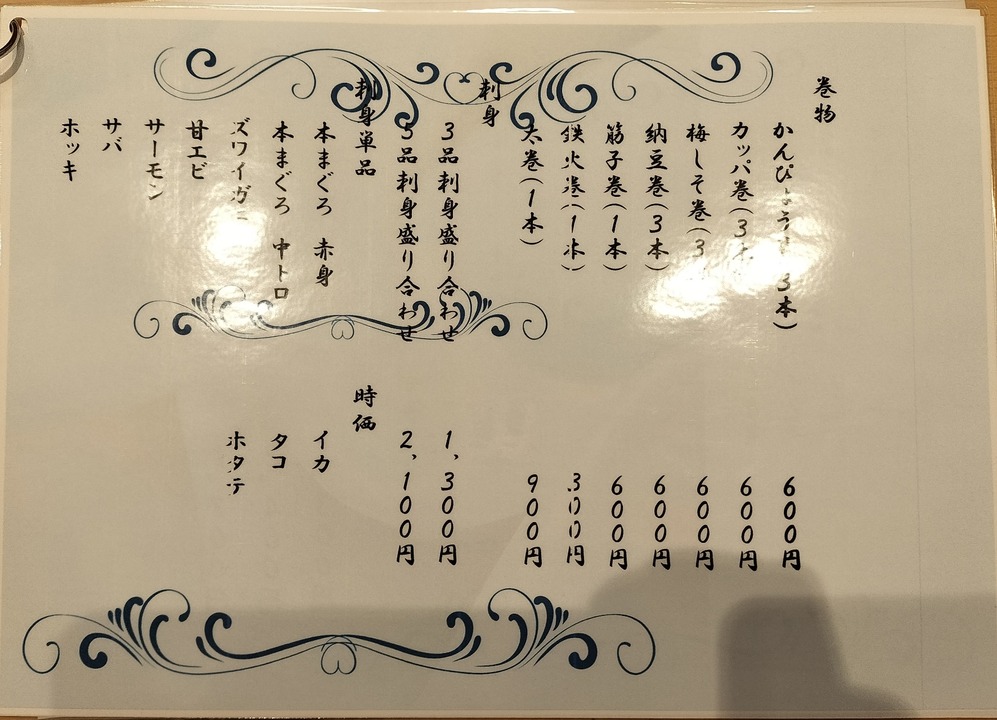 巻物
かんぴょう巻(3本) 600円
カッパ巻(3本) 600円
梅しそ巻(3 600円
納豆巻(3本) 600円
筋子巻(1本) 600円
鉄火巻(1本) 300円
太巻(1本) 900円
刺身
3品刺身盛り合わせ 1,300円
5品刺身盛り合わせ 2,100円
刺身単品 時価
本まぐろ 赤身
本まぐろ 中トロ
ズワイガニ
甘エビ
サーモン
サバ
ホッキ
イカ
タコ
ホタテ